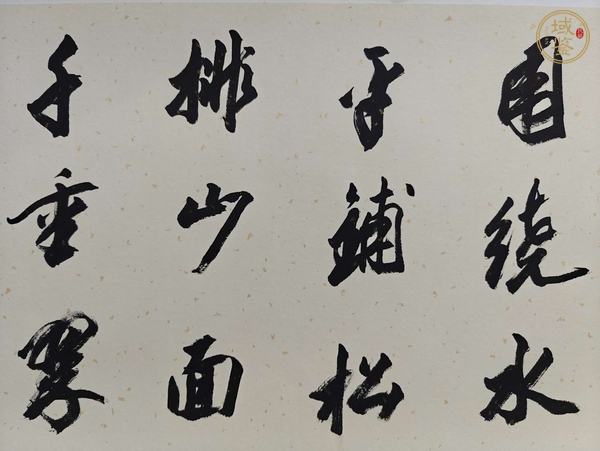 围繞水
平鋪松
排山面
千重翠
域鉴